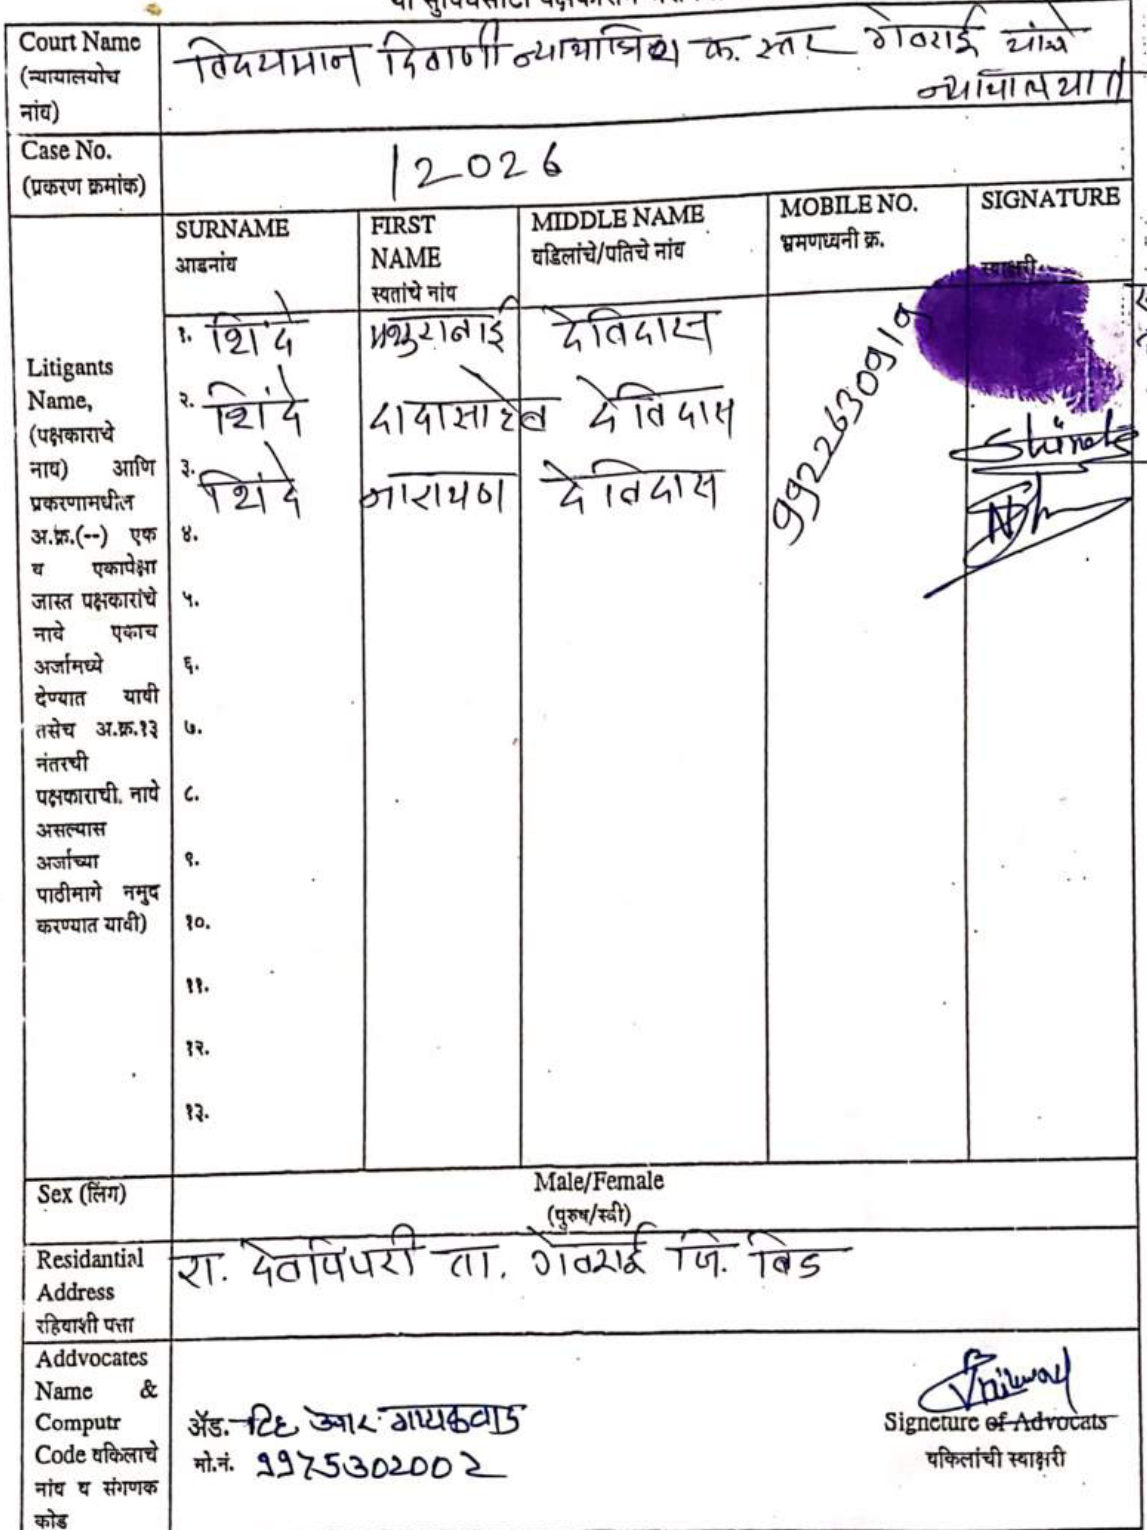 Court Name
(न्यायालयोच
नांव)
विदयमान दिवाणी न्यायाधिश क. स्तर गेवराई यांचे
न्यायालयात
Case No.
(प्रकरण क्रमांक)
/2026
SURNAME
आडनांव
FIRST
NAME
स्वतांचे नांव
MIDDLE NAME
वडिलांचे/पतिचे नांव
MOBILE NO.
भ्रमणध्वनी क्र.
SIGNATURE
स्वाक्षरी
Litigants
Name,
(पक्षकाराचे
नाव) आणि
प्रकरणामधील
अ.क्र.(--) एक
व एकापेक्षा
जास्त पक्षकारांचे
नावे एकाच
अर्जामध्ये
देण्यात यावी
तसेच अ.क्र.१३
नंतरची
पक्षकाराची नावे
असल्यास
अर्जाच्या
पाठीमागे नमुद
करण्यात यावी)
१. शिंदे मथुराबाई देविदास
२. शिंदे दादासाहेब देविदास
३. शिंदे नारायण देविदास
Shinde
४.
५.
६.
७.
८.
९.
१०.
११.
१२.
१३.
Sex (लिंग)
Male/Female
(पुरुष/स्त्री)
Residantial
Address
रहिवाशी पत्ता
रा. देवपिंपरी ता. गेवराई जि. बिड
Addvocates
Name &
Computr
Code वकिलाचे
नांव व संगणक
कोड
ॲड. व्हि. आर. गायकवाड
मो.नं. 9975302002
Signeture of Advocats
वकिलांची स्वाक्षरी